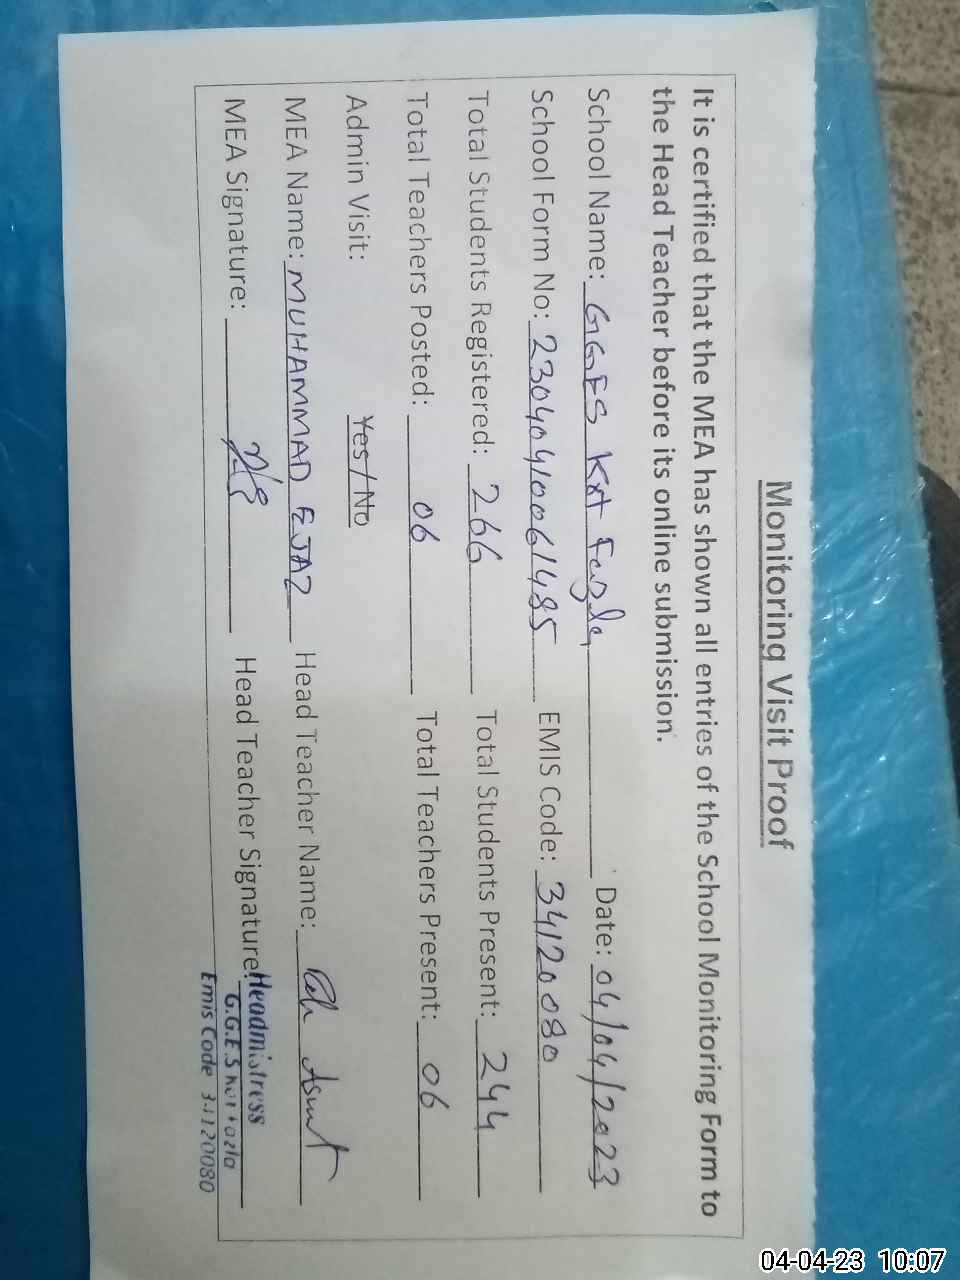 Monitoring Visit Proof
It is certified that the MEA has shown all entries of the School Monitoring Form to
the Head Teacher before its online submission.
School Name: GGES Kot Fazla Date: 04/04/2023
School Form No: 23040410061485 EMIS Code: 34120080
Total Students Registered: 266 Total Students Present: 244
Total Teachers Posted: 06 Total Teachers Present: 06
Admin Visit: Yes / No
MEA Name: MUHAMMAD EJAZ Head Teacher Name:
MEA Signature: Head Teacher Signature:
Headmistress
G.G.E.S Kot Fazla
Emis Code 34120080
04-04-23 10:07